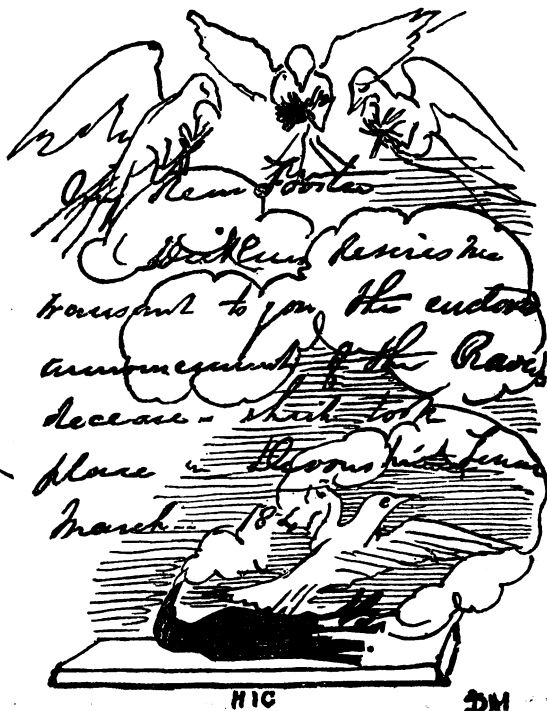 My Dear Forster
Dickens desires me
transmit to you the enclosed
announcement of the Raven's
decease which took
place in Devonshire Terrace
March 184
HIC
DM